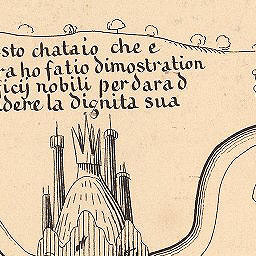 sto chataio che e
ra ho fatio dimostration
ficij nobili per dar a d
dere la dignita sua